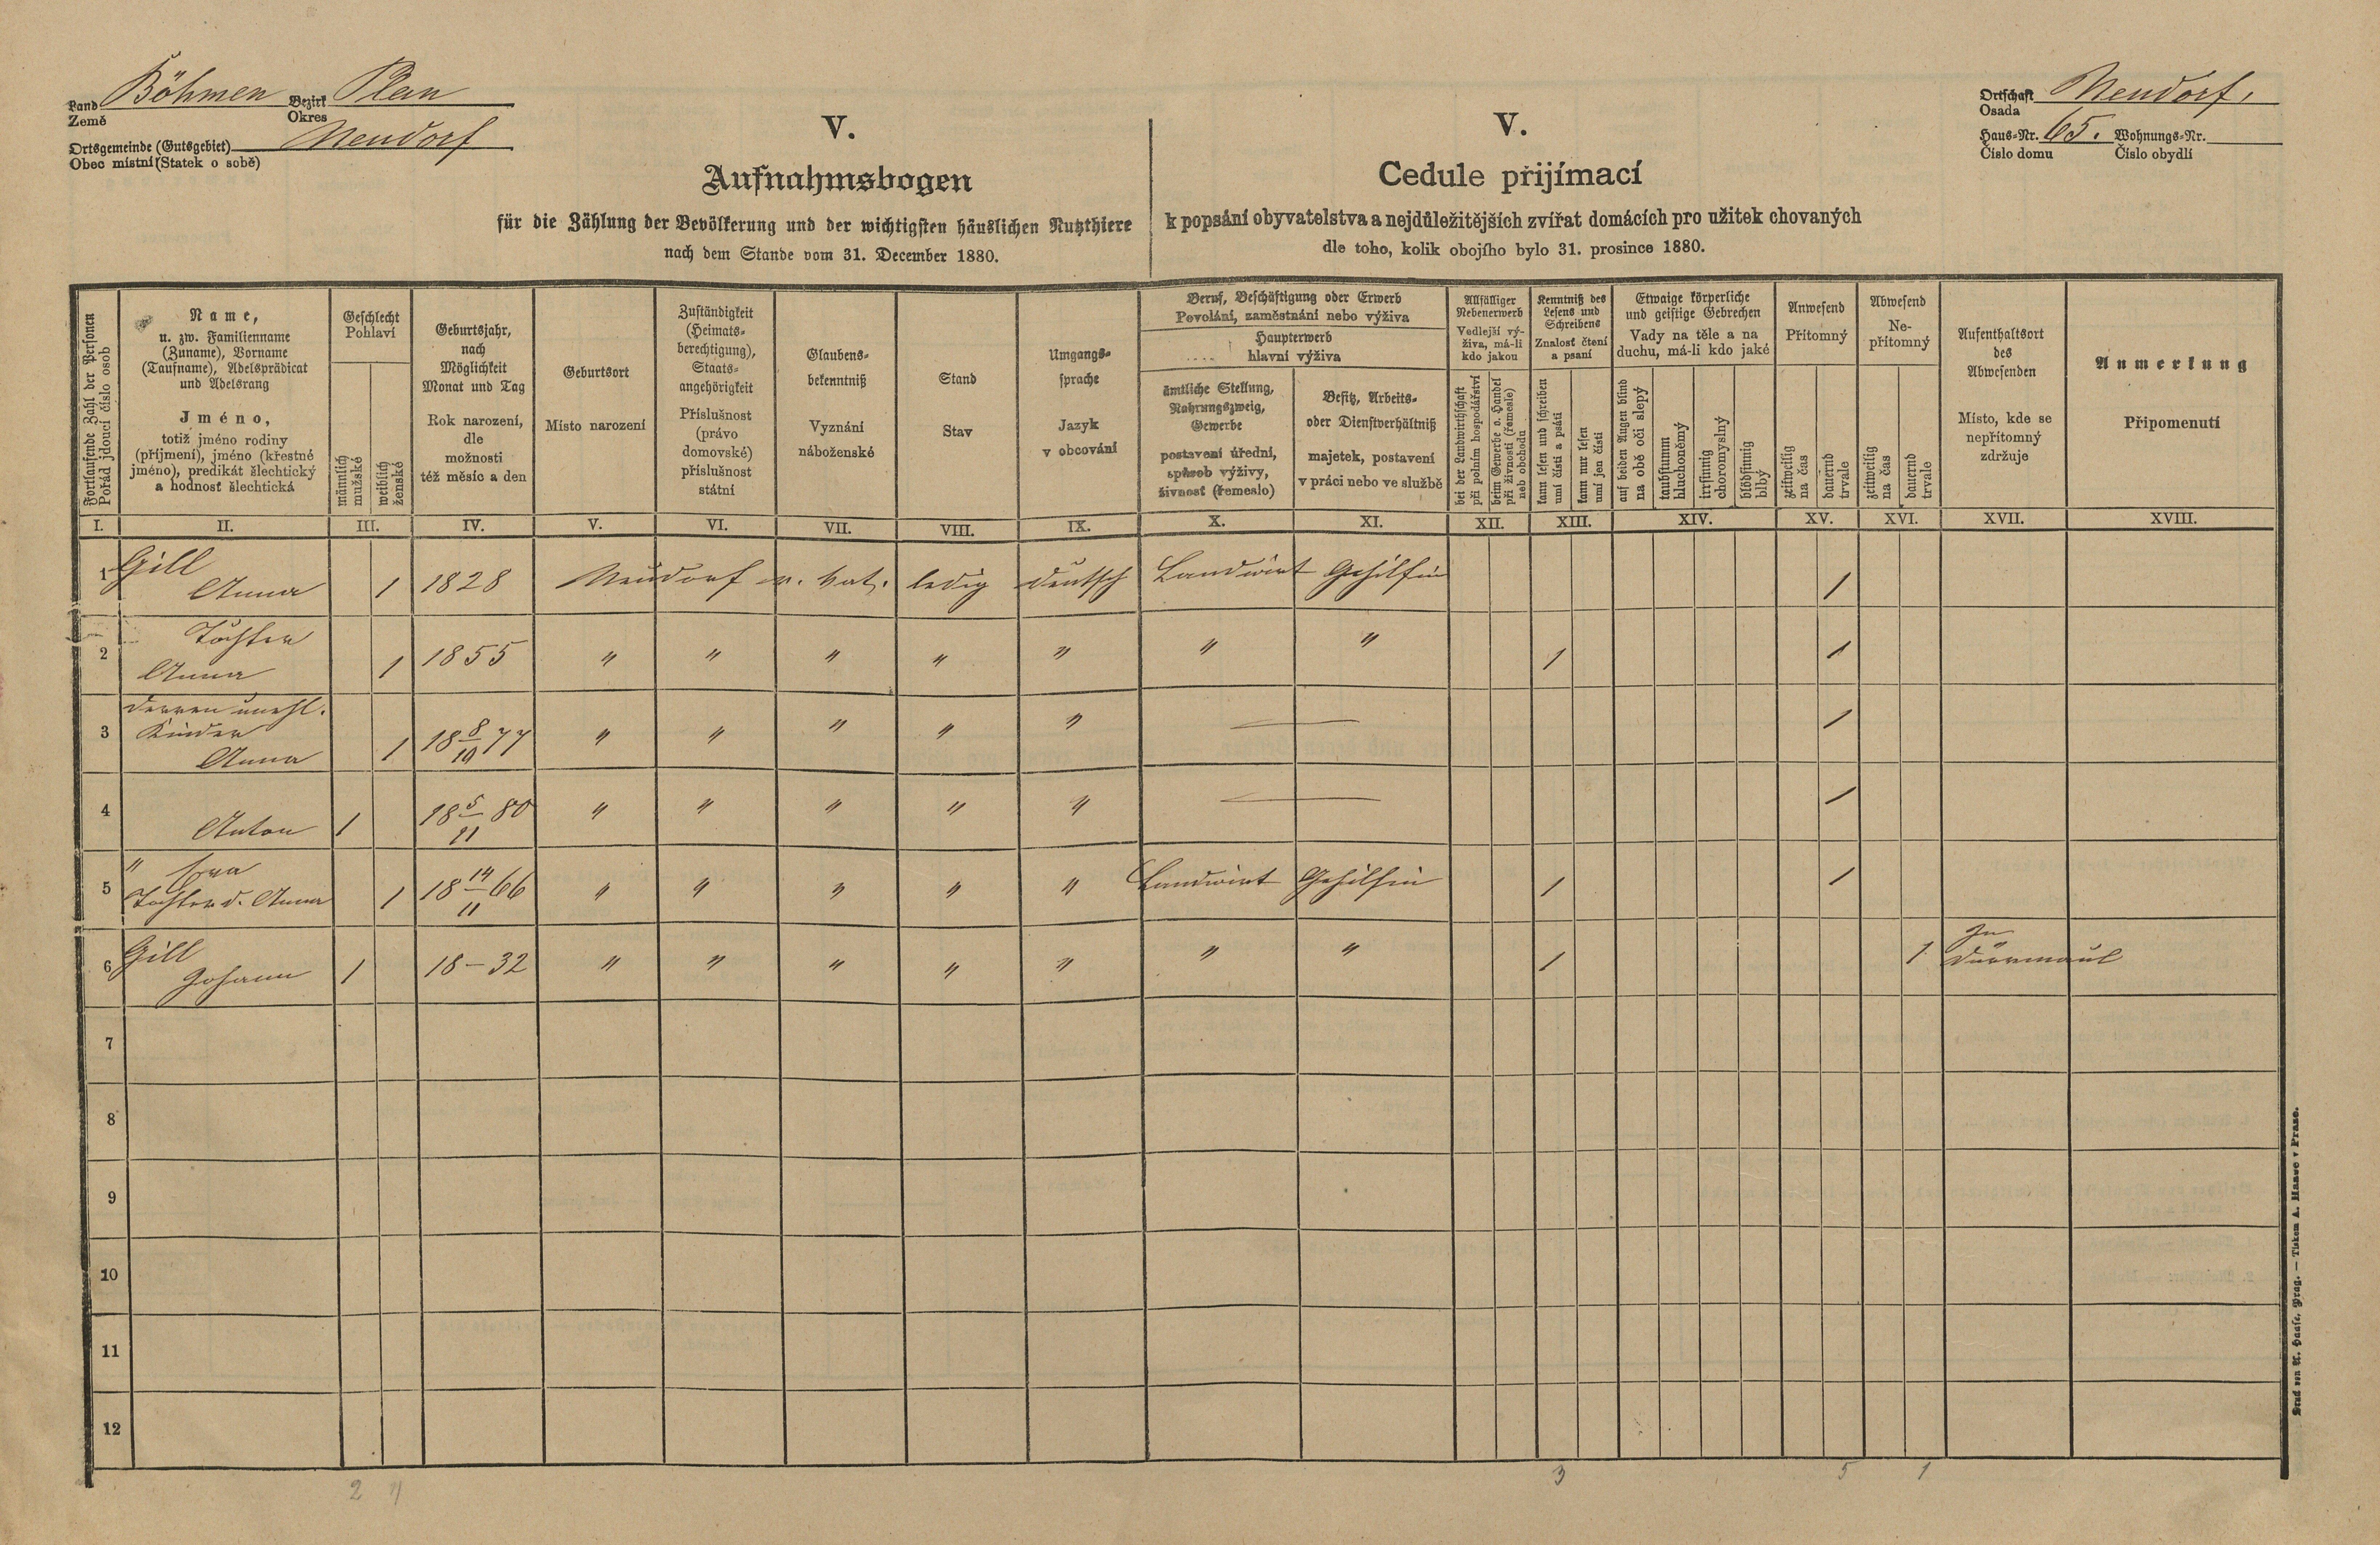 Land Böhmen Bezirk Plan
Země Okres
Ortsgemeinde (Gutsgebiet) Neudorf
Obec místní (Statek o sobě)
V.
Aufnahmsbogen
für die Zählung der Bevölkerung und der wichtigsten häuslichen Nutzthiere
nach dem Stande vom 31. December 1880.
V.
Cedule přijímací
k popsání obyvatelstva a nejdůležitějších zvířat domácích pro užitek chovaných
dle toho, kolik obojího bylo 31. prosince 1880.
Ortschaft Neudorf,
Osada
Haus-Nr. 65. Wohnungs-Nr.
Číslo domu Číslo obydlí
Fortlaufende Zahl der Personen
Pořád jdoucí číslo osob
Name,
u. zw. Familienname
(Zuname), Vorname
(Taufname), Adelsprädicat
und Adelsrang
Jméno,
totiž jméno rodiny
(příjmení), jméno (křestné
jméno), predikát šlechtický
a hodnost šlechtická
Geschlecht
Pohlaví
männlich
mužské
weiblich
ženské
Geburtsjahr,
nach
Möglichkeit
Monat und Tag
Rok narození,
dle
možnosti
též měsíc a den
Geburtsort
Místo narození
Zuständigkeit
(Heimats-
berechtigung),
Staats-
angehörigkeit
Příslušnost
(právo
domovské)
příslušnost
státní
Glaubens-
bekenntniß
Vyznání
náboženské
Stand
Stav
Umgangs-
sprache
Jazyk
v obcování
Beruf, Beschäftigung oder Erwerb
Povolání, zaměstnání nebo výživa
Haupterwerb
hlavní výživa
ämtliche Stellung,
Nahrungszweig,
Gewerbe
postavení úřední,
spůsob výživy,
živnost (řemeslo)
Besitz, Arbeits-
oder Dienstverhältniß
majetek, postavení
v práci nebo ve službě
Allfälliger
Nebenerwerb
Vedlejší vý-
živa, má-li
kdo jakou
bei der Landwirthschaft
při polním hospodářství
beim Gewerbe o. Handel
při živnosti (řemesle)
neb obchodu
Kenntniß des
Lesens und
Schreibens
Znalost čtení
a psaní
kann lesen und schreiben
umí čísti a psáti
kann nur lesen
umí jen čísti
Etwaige körperliche
und geistige Gebrechen
Vady na těle a na
duchu, má-li kdo jaké
auf beiden Augen blind
na obě oči slepý
taubstumm
hluchoněmý
irrsinnig
choromyslný
blödsinnig
blbý
Anwesend
Přítomný
zeitweilig
na čas
dauernd
trvale
Abwesend
Ne-
přítomný
zeitweilig
na čas
dauernd
trvale
Aufenthaltsort
des
Abwesenden
Místo, kde se
nepřítomný
zdržuje
Anmerkung
Připomenutí
I. II. III. IV. V. VI. VII. VIII. IX. X. XI. XII. XIII. XIV. XV. XVI. XVII. XVIII.
1 Gill
Anna 1 1828 Neudorf r. kat. ledig deutsch Landwirt Gehilfin 1
2 Tochter
Anna 1 1855 " " " " " " " 1 1
3 derren unehl.
Kinder
Anna 1 18 8/10 77 " " " " " — 1
4 Anton 1 18 5/11 80 " " " " " — 1
5 " Eva
Tochter d. Anna 1 18 14/11 66 " " " " " Landwirt Gehilfin 1 1
6 Gill
Johann 1 18-32 " " " " " " " 1 1 In
Dürrmaul
7
8
9
10
11
12
2 4 3 5 1
Druck von A. Haase, Prag. — Tiskem A. Haase v Praze.